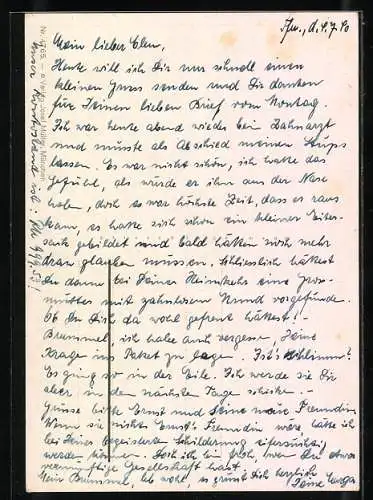 d. 8.7.40
Mein lieber
Heute will ich Dir nur schnell einen
kleinen Gruss senden und Dir danken
für Deinen lieben Brief vom Montag.
Ich war heute abend wieder beim Zahnarzt
und musste als Abschied meinen
lassen. Es war nicht schön, ich hatte das
Gefühl, als würde er ihn aus der Nase
holen, doch es war höchste Zeit, dass er raus
kam, es hatte sich schon ein kleiner Eiter-
sack gebildet und bald hätten noch mehr
dran glauben müssen. Schliesslich hättest
Du dann bei Deiner Heimkehr eine Gros-
mutter mit zahnlosem Mund vorgefunden.
Ob Du Dich da wohl gefreut hättest! -
Brummel, ich habe auch vergessen, Deine
Kragen ins Paket zu legen. Ist's schlimm?
Es ging so in der Eile. Ich werde sie Dir
aber in den nächsten Tagen schicken. -
Grüsse bitte Ernst und seine neue Freundin
Wenn sie nicht Ernst's Freundin wäre, hätte ich
bei Deiner begeisterten Schilderung eifersüchtig
werden können. Doch ich bin froh, wenn Du etwas
vernünftige Gesellschaft hast.
Mein Brummel, leb wohl, es grüsst Dich herzlich
Deine
Verlag Josef Müller, München